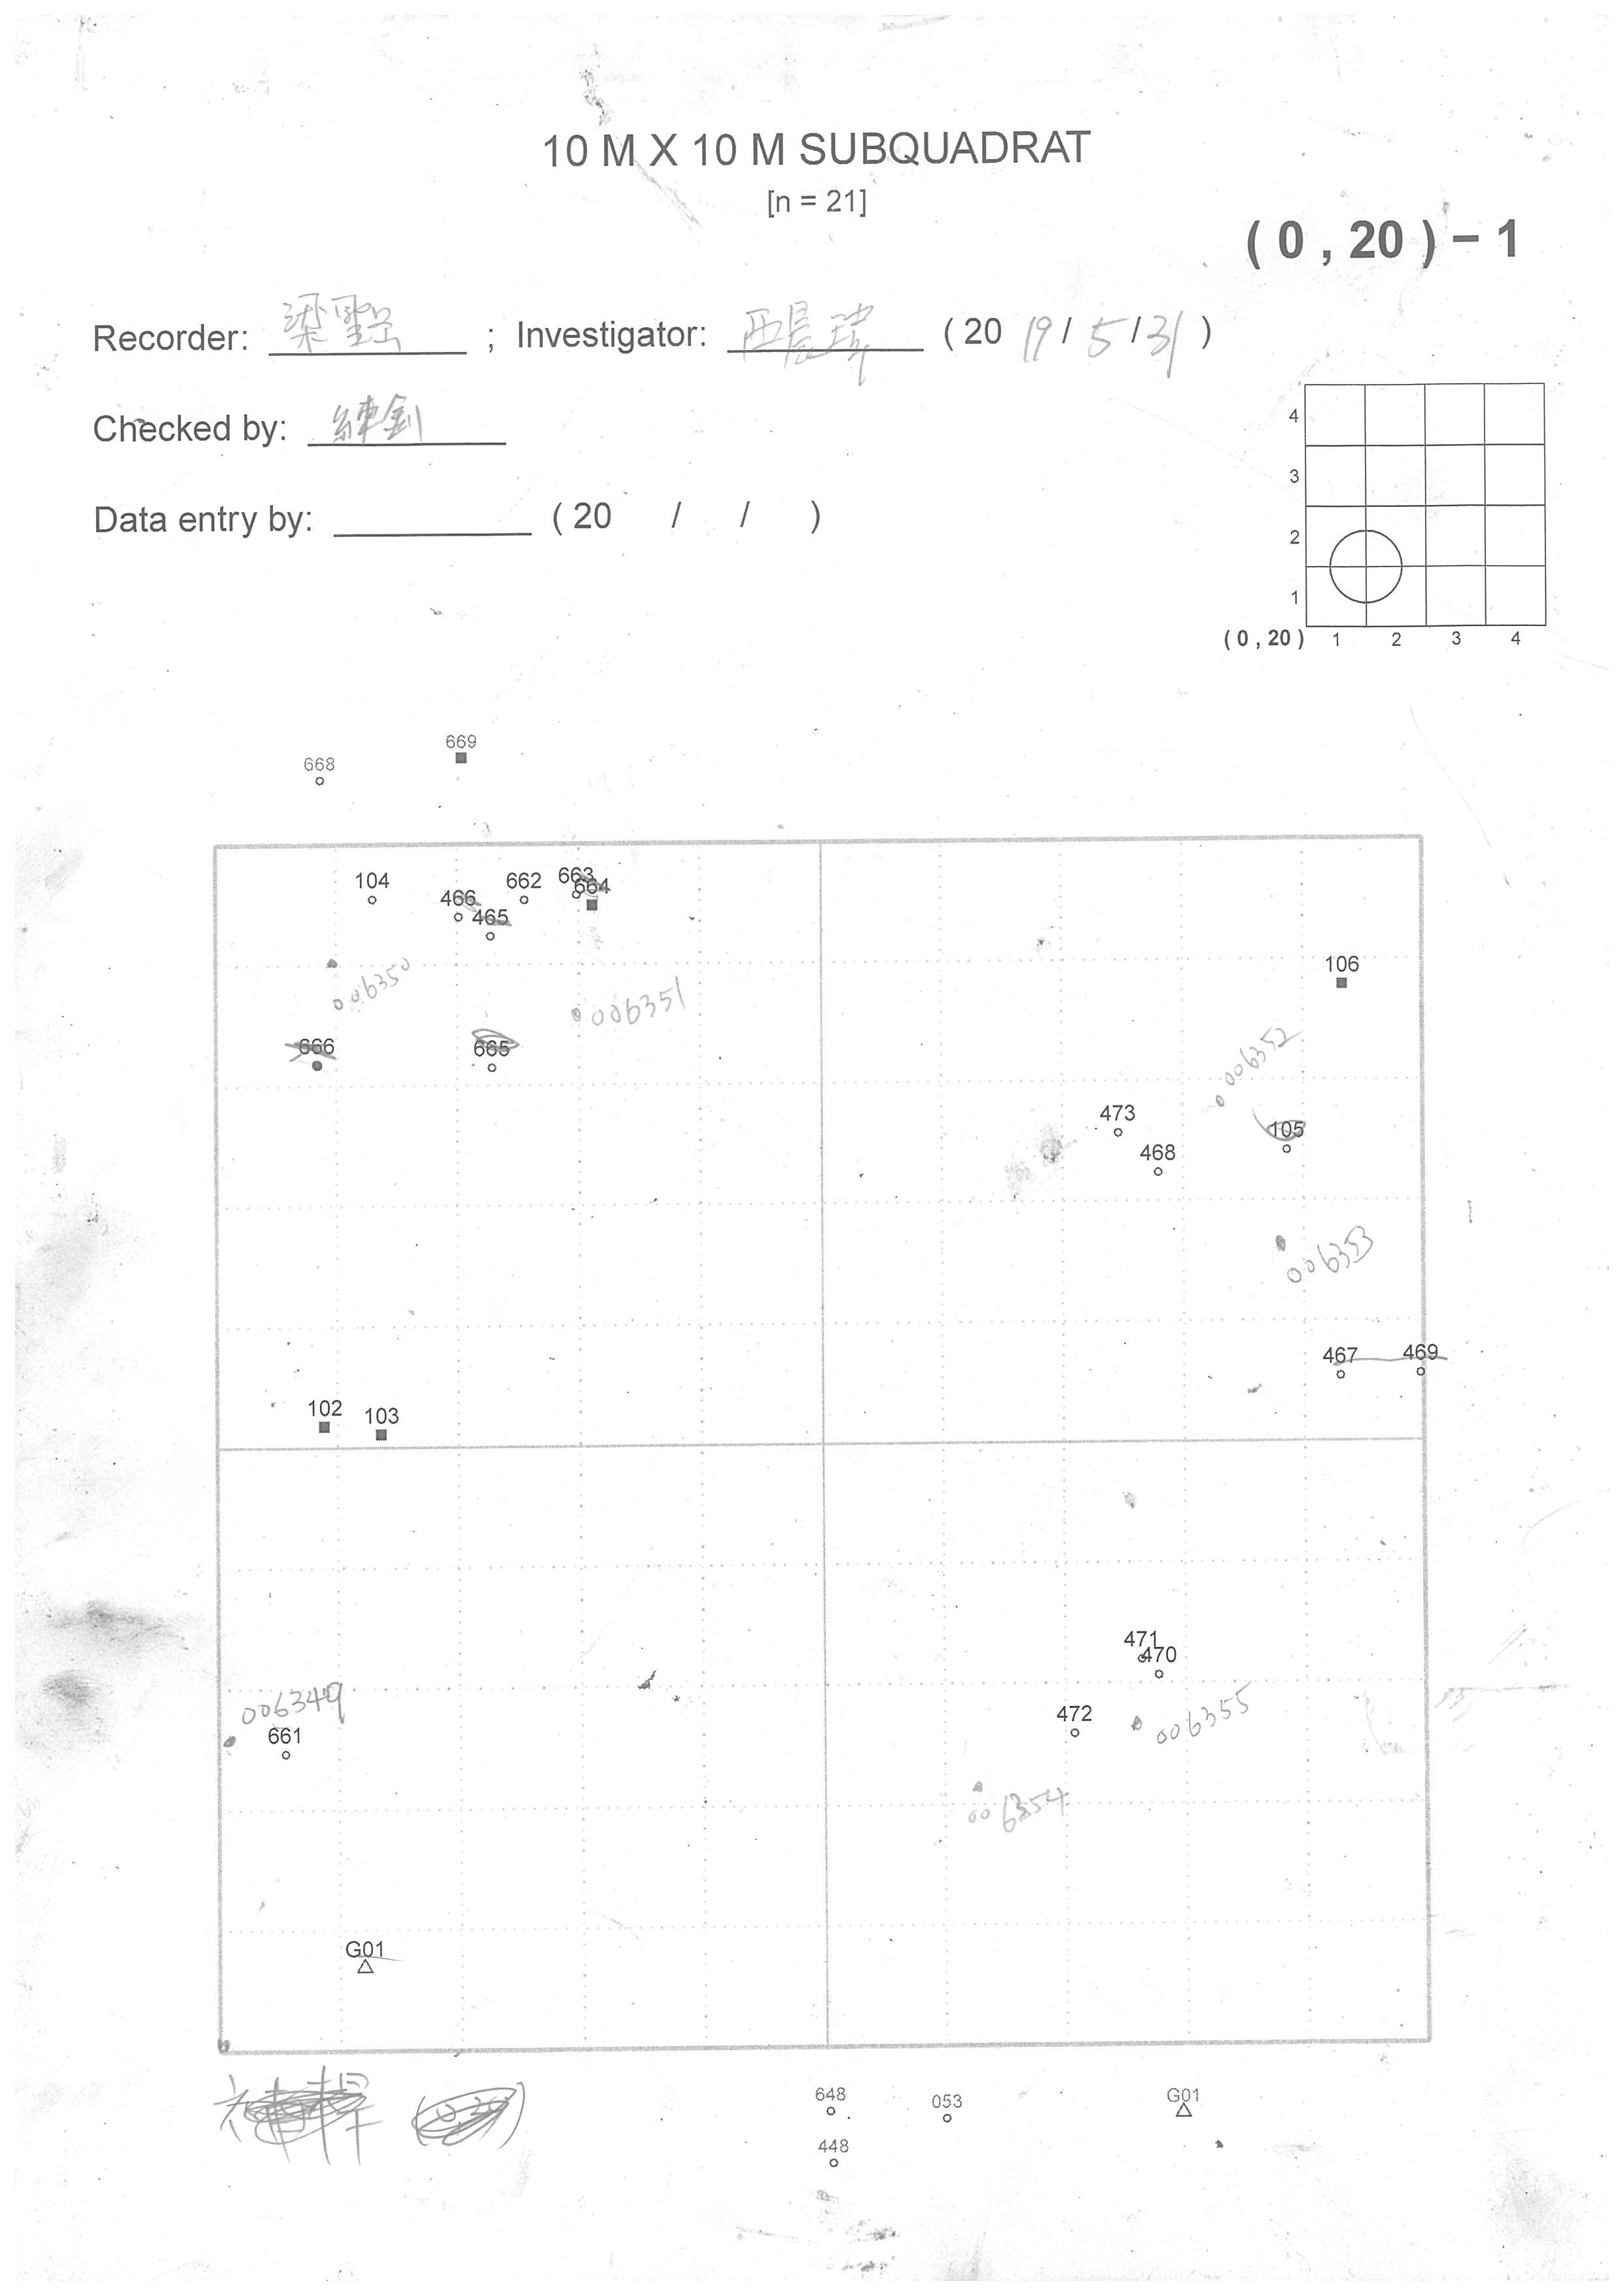 10 M X 10 M SUBQUADRAT
[n = 21]
( 0 , 20 ) − 1
Recorder: ; Investigator: ( 20 19 / 5 / 31 )
Checked by:
Data entry by: ( 20 / / )
4
3
2
1
( 0 , 20 ) 1 2 3 4
669
668
104 466 465 662 663 664
106
006350
006351
666 665
006352
473 468 105
006353
467 469
102 103
471 470
006349
661
472 006355
006354
G01
648 053 G01
448